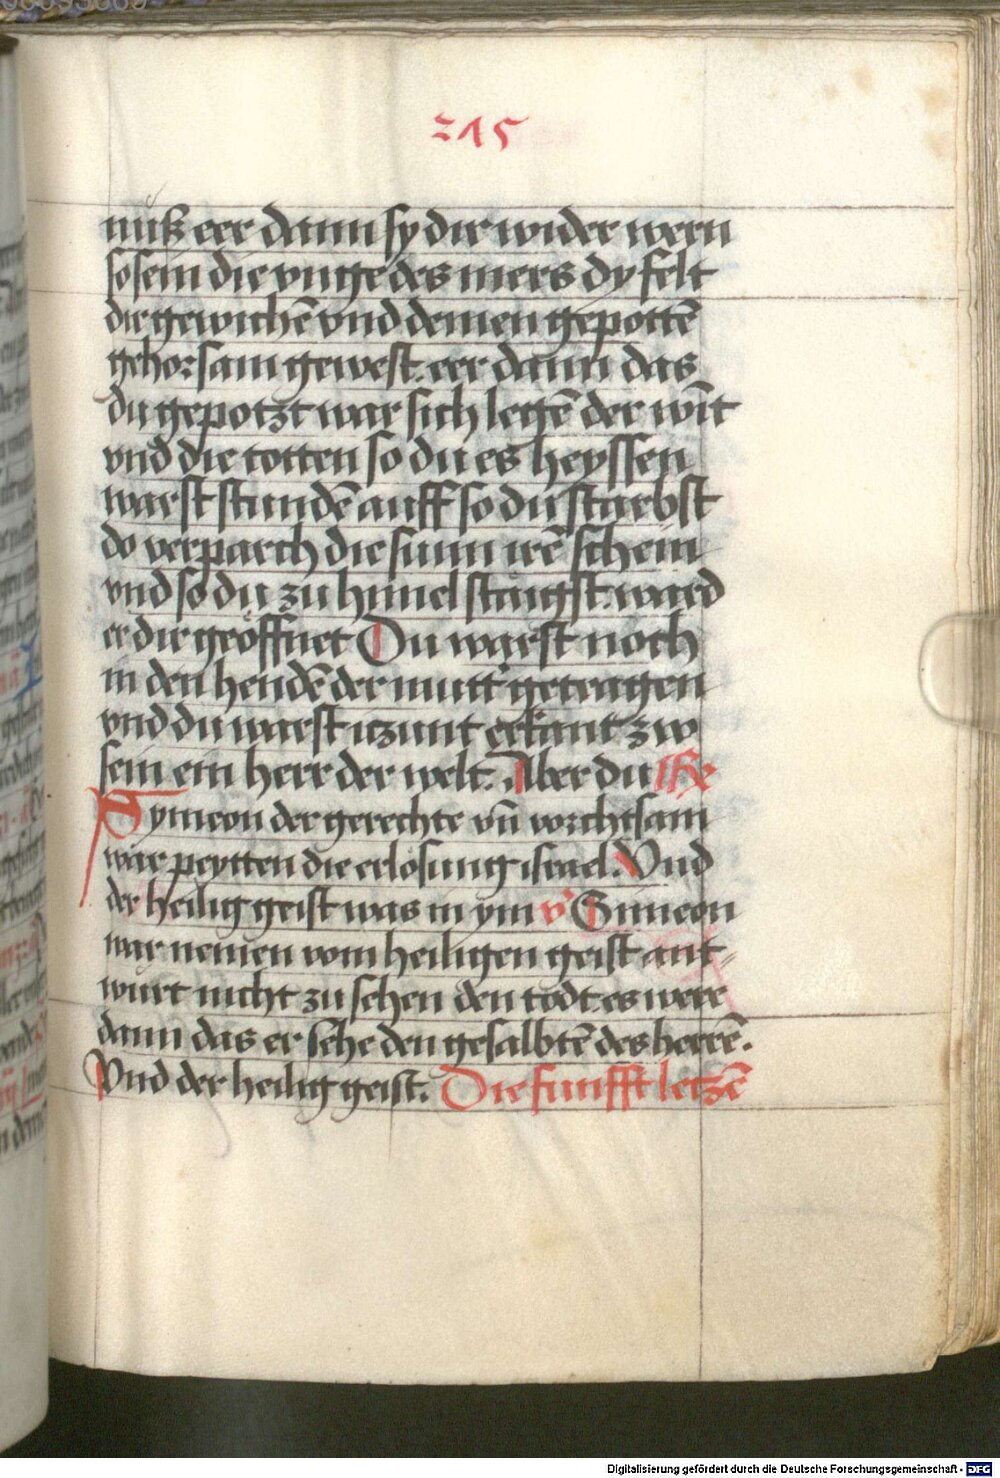 215
muß eer dann sy dir wider wern
so sein die vnge des mers dy felt
dir gewichē vnd deinen gepottē
gehorsam gewest. eer dann das
du gepotzt war sich legē der wīt
vnd die totten so du es heyssen
warst stundē auff so du starbst
do verparch die sunn irē schein
vnd so du zu himel staigst. ward
er dir geöffnet Du warst noch
in den hendē der mutt getragen
vnd du warst iczunt erkant zw
sein ein herr der welt. Aber du
Symeon der gerechte vn̄ vorchtsam
war peytten die erlosung israel. Vnd
der heilig geist was in ym v̓ Simeon
war nemen vom heiligen geist ant-
wurt nicht zu sehen den todt. es were
dann das er sehe den gesalbtē des herrē.
Vnd der heilig geist. Die funfft letzē
Digitalisierung gefördert durch die Deutsche Forschungsgemeinschaft - DFG